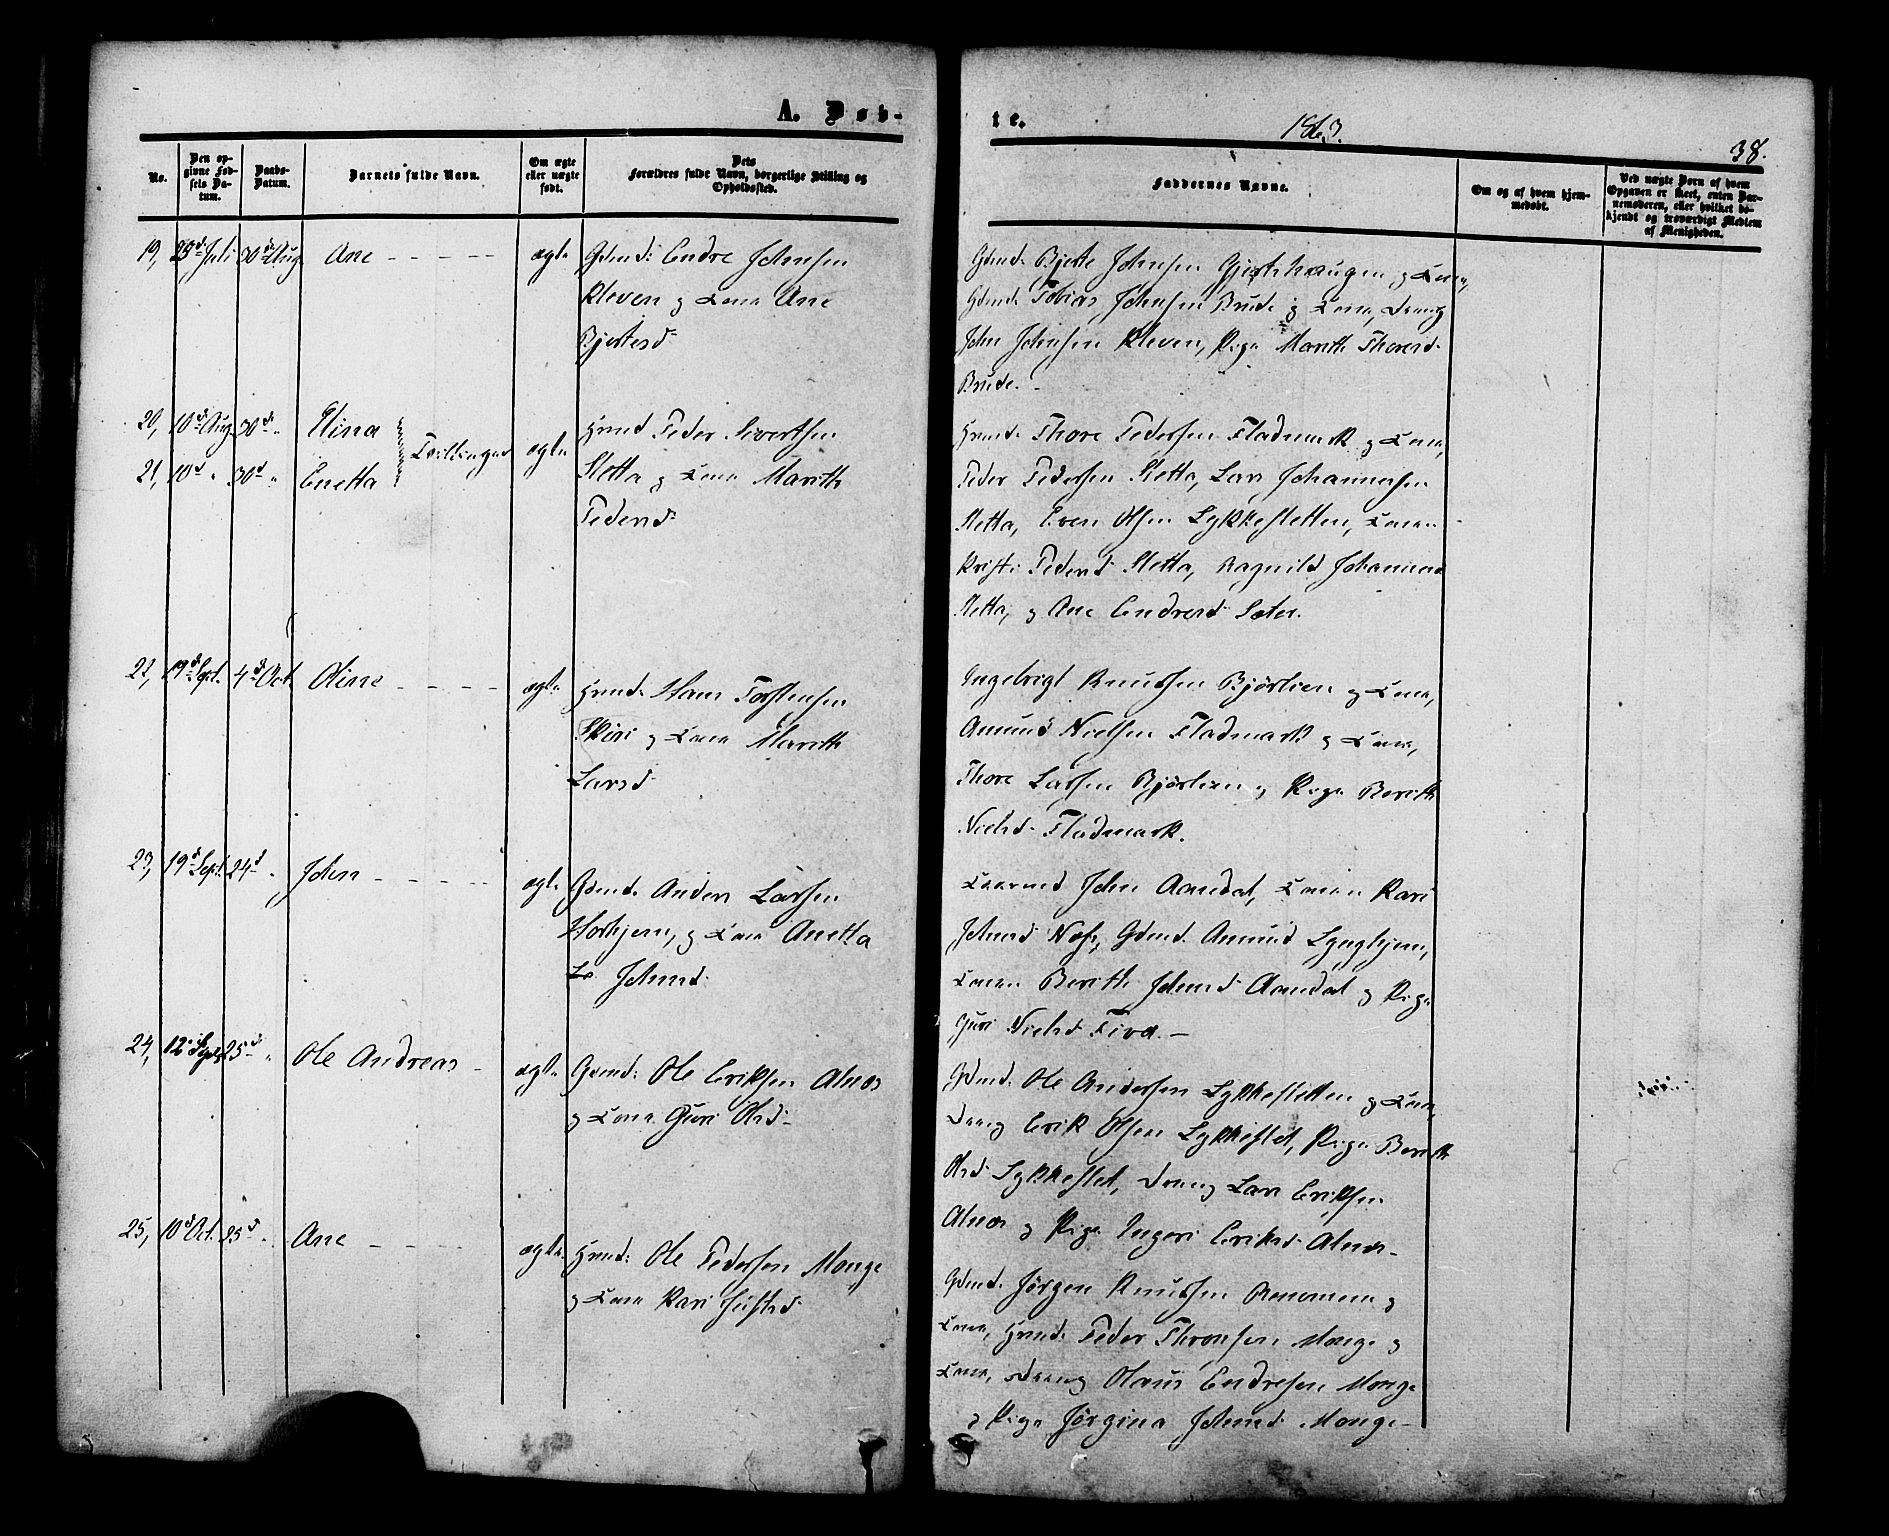 A. Døb-
te.
1863.
38.
No.
Den op-
givne Fød-
sels Da-
tum.
Daabs-
Datum.
Barnets fulde Navn.
Om ægte
eller uægte
født.
Dets
Forældres fulde Navn, borgerlige Stilling og
Opholdssted.
Faddernes Navne.
Om og af hvem hjem-
medøbt.
Ved uægte Børn af hvem
Opgaven er skeet, enten Bar-
nemoderen, eller hvilket be-
kjendt og troværdigt Medlem
af Menigheden.
19, 25d Juli 30d Aug Ane - - - - - ægte Gdmd: Endre Johnsen
Kleven og Kone Ane
Bjertesd:
Gdmd: Bjerte Johnsen Gjerthaugen og Kone,
Gdmd: Tobias Johnsen Brude og Kone, Dreng
John Johnsen Kleven, Pige Marith Thoresd:
Brude. -
20, 10d Aug. 30d " Elina
21, 10d " 30d " Enetta
Tvillinger ægte Huusmd Peder Sivertsen
Sletta og Kone Marith
Pedersd:
Thore Pedersen Fladmark og Kone,
Peder Pedersen Sletta, Lars Johannesen
Sletta, Even Olsen Lykkesletten, Konen
Kristi Pedersd Sletta, Ragnild Johannesd
Sletta, og Ane Endresd: Sæter.
22, 19d Sept. 4d Oct. Oline - - - - ægte Hans Torstensen
Skiri og Kone Marith
Larsd:
Ingebrigt Knudsen Bjørlien og Kone,
Amund Nielsen Fladmark og Kone,
Thore Larsen Bjørlien og Pige Berith
Nielsd: Fladmark.
23, 19d Sept. 24d " John - - - - - ægte Gdmd. Anders Larsen
Horhjem, og Kone Anetta
Johnsd:
John Aandal, Konen Kari
Johnsd Næs, Gdmd. Amund Lynghjem,
Konen Berith Johnsd Aandal og Pige
Guri Nielsd Fiva. -
24, 12d Sept 25d " Ole Andreas - ægte Gdmd: Ole Eriksen Alnæs
og Kone Guri Olsd -
Gdmd: Ole Andersen Lykkesletten og Kone,
Dreng Erik Olsen Lykkeslet, Pige Berith
Olsd: Lykkeslet, Dreng Lars Eriksen
Alnæs og Pige Ingeri Eriksd Alnæs -
25, 10d Oct. 25d " Ane - - - - ægte Ole Pedersen Monge
og Kone Kari
Gdmd. Jørgen Knudsen Remmem og
Kone, Peder Thronsen Monge og
Kone, Dreng Olaus Endresen Monge
og Pige Jørgina Johnsd: Monge -